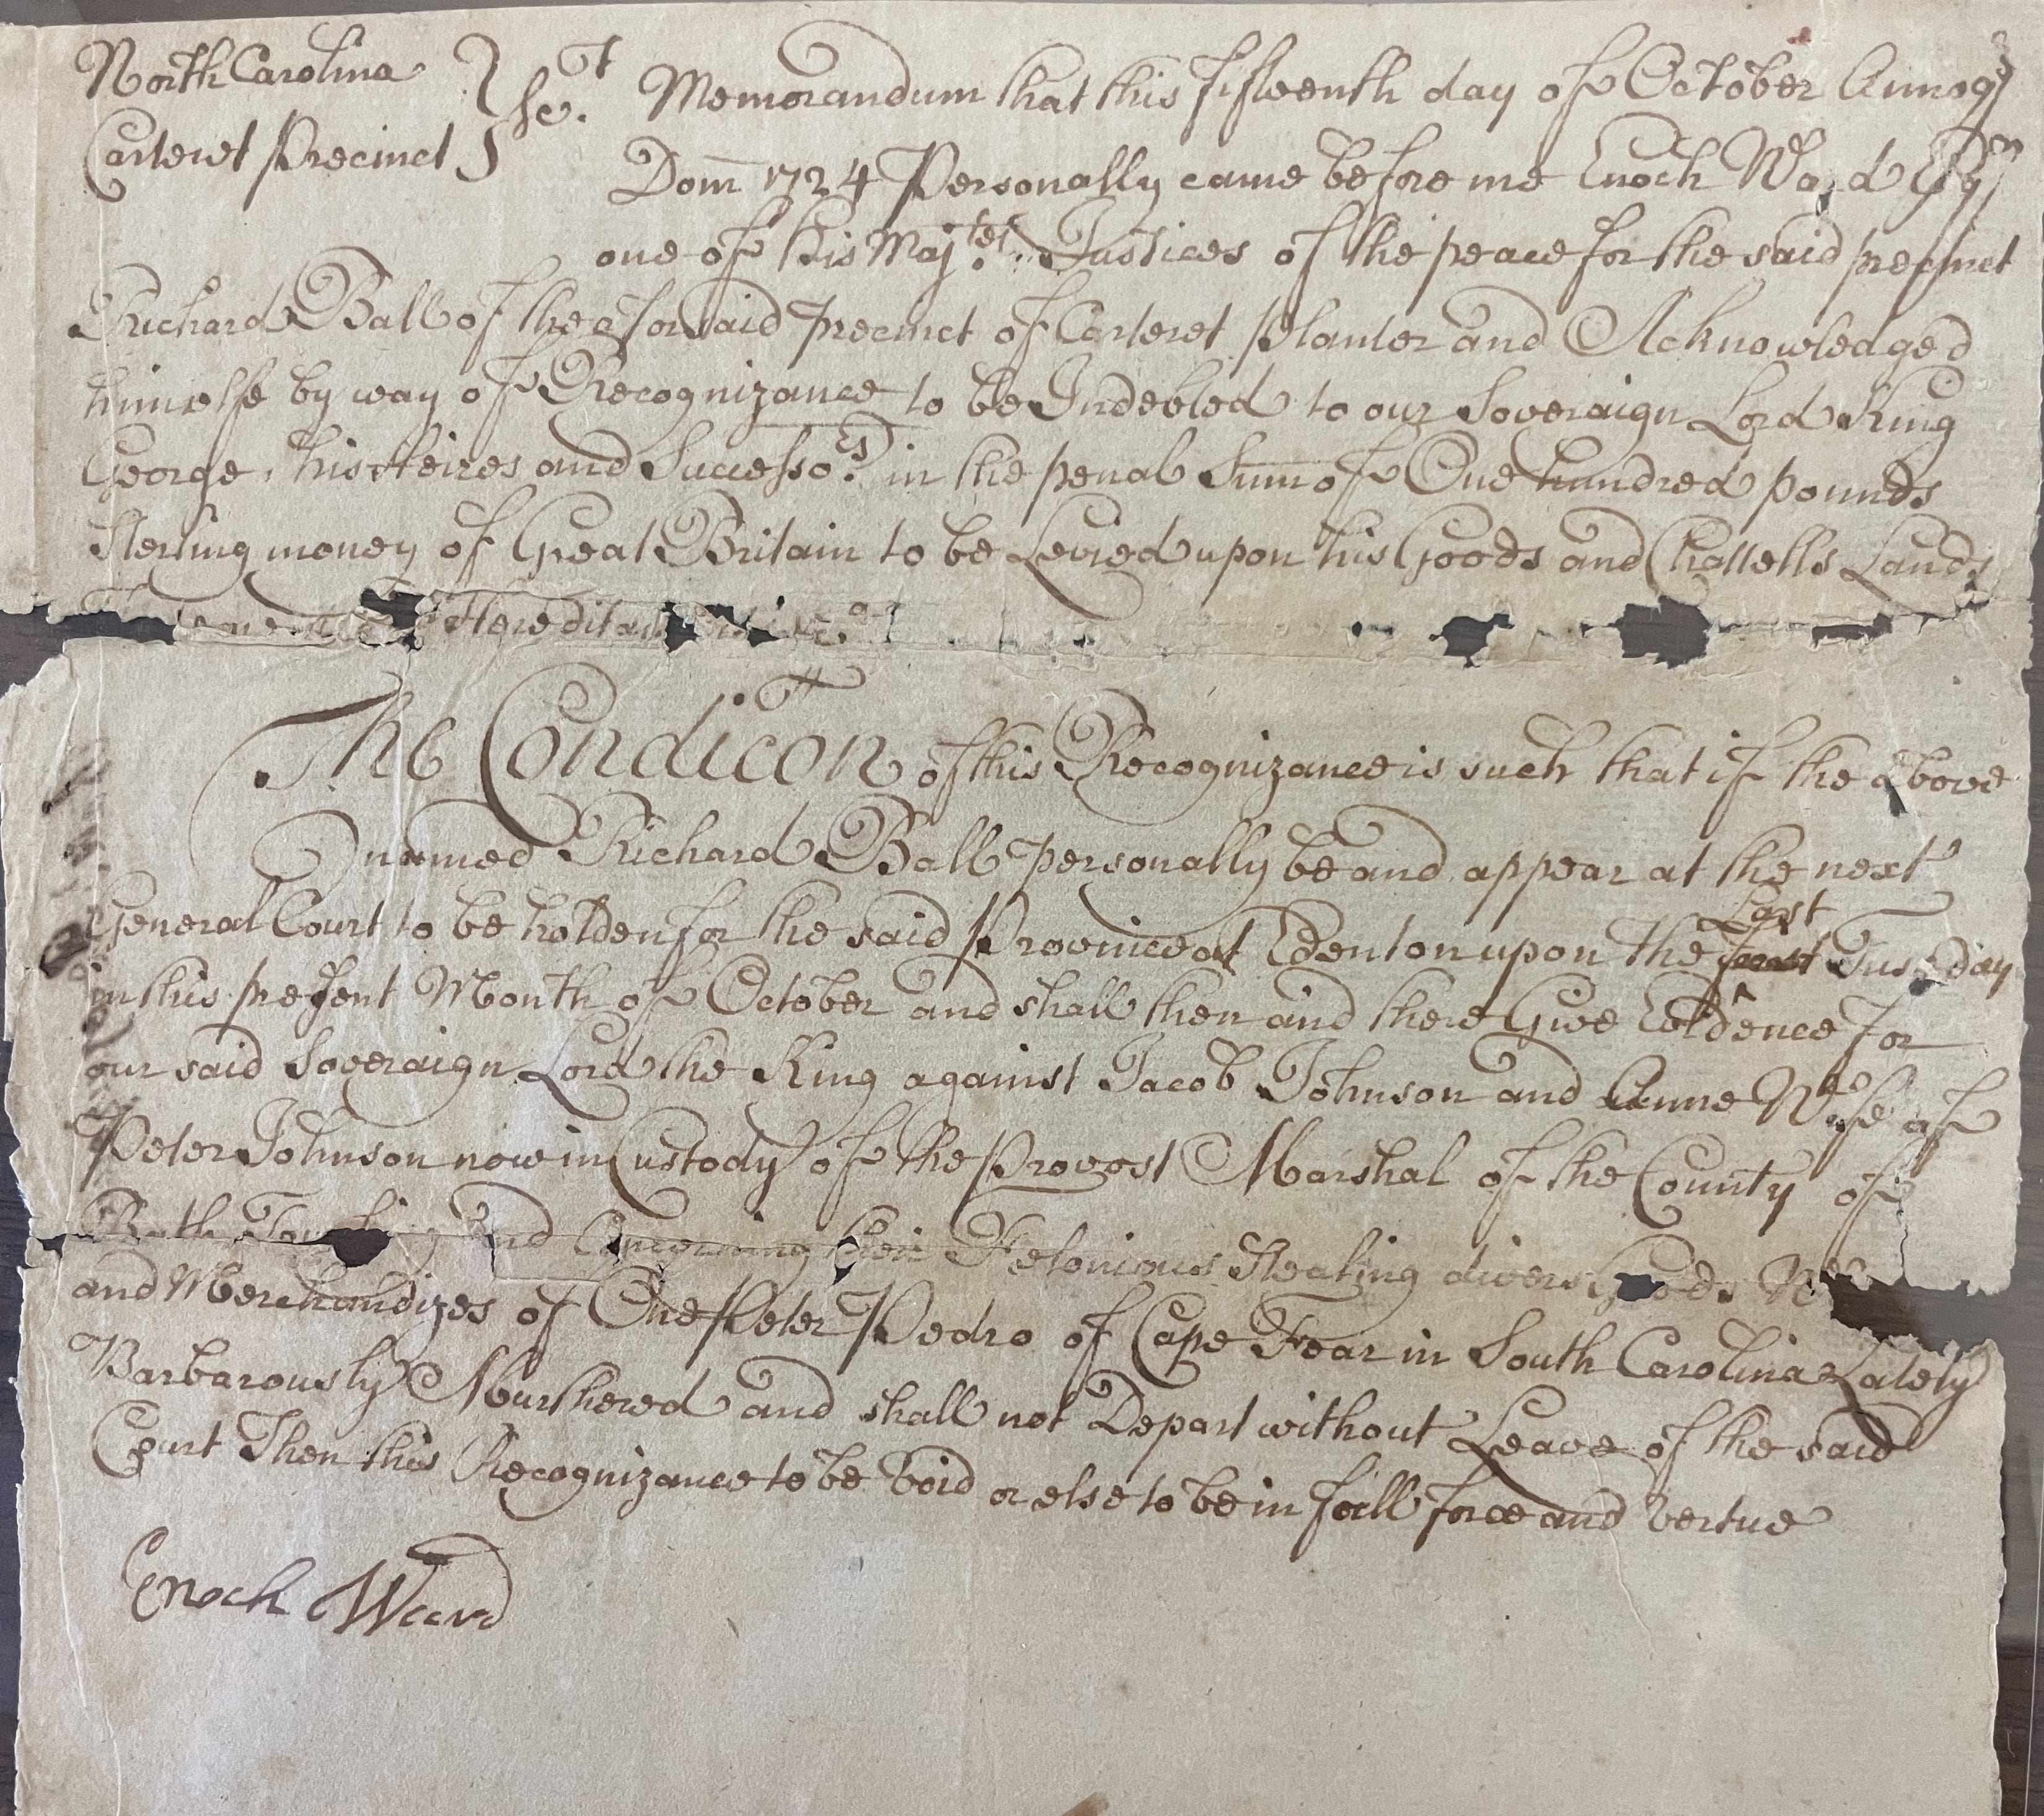 North Carolina } Sc.t Memorandum that this fifteenth day of October Annoq3
Carteret Precinct } Dom 1724 Personally came before me Enoch Ward Esqr
one of his Maj.ties Justices of the peace for the said precinct
Richard Ball of the aforsaid precinct of Carteret Planter and Acknowledged
himselfe by way of Recognizance to be Indebted to our Soveraign Lord King
George, his Heires and Successo.rs in the penal Sum of One hundred pounds
Sterling money of Great Britain to be Levied upon his Goods and Chattells Lands
The Condicon of this Recognizance is such that if the above
named Richard Ball personally be and appear at the next
General Court to be holden for the said Province at Edenton upon the Last Tuseday
in this present Month of October and shall then and there Give Evidence for
our said Soveraign Lord the King against Jacob Johnson and Anne Wife of
Peter Johnson now in Custody of the Provost Marshal of the County of
Bath Touching and Concerning their Felonious Stealing divers Goods
and Merchandizes of One Peter Pedro of Cape Fear in South Carolina Lately
Barbarously Murthered and shall not Depart without Leave of the said
Court Then this Recognizance to be void or else to be in full force and vertue
Enoch Ward